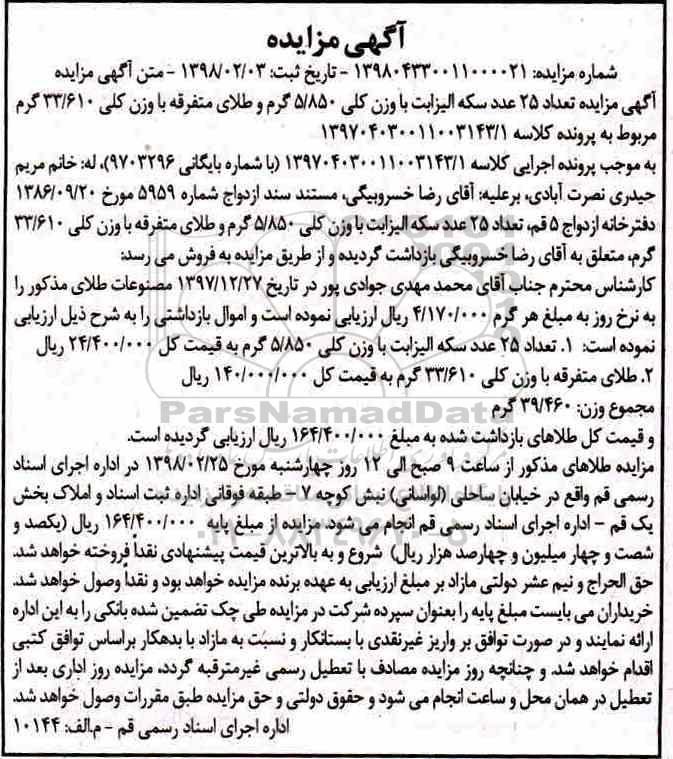 آگهی مزایده
شماره مزایده: ۱۳۹۸۰۴۳۳۰۰۱۱۰۰۰۰۲۱ - تاریخ ثبت: ۱۳۹۸/۰۲/۰۳ - متن آگهی مزایده
آگهی مزایده تعداد ۲۵ عدد سکه الیزابت با وزن کلی ۵/۸۵۰ گرم و طلای متفرقه با وزن کلی ۳۳/۶۱۰ گرم
مربوط به پرونده کلاسه ۱۳۹۷۰۴۰۳۰۰۱۱۰۰۳۱۴۳/۱
به موجب پرونده اجرایی کلاسه ۱۳۹۷۰۴۰۳۰۰۱۱۰۰۳۱۴۳/۱ (با شماره بایگانی ۹۷۰۳۲۹۶)، له: خانم مریم
حیدری نصرت آبادی، برعلیه: آقای رضا خسروبیگی، مستند سند ازدواج شماره ۵۹۵۹ مورخ ۱۳۸۶/۰۹/۲۰
دفترخانه ازدواج ۵ قم، تعداد ۲۵ عدد سکه الیزابت با وزن کلی ۵/۸۵۰ گرم و طلای متفرقه با وزن کلی ۳۳/۶۱۰
گرم، متعلق به آقای رضا خسروبیگی بازداشت گردیده و از طریق مزایده به فروش می رسد:
کارشناس محترم جناب آقای محمد مهدی جوادی پور در تاریخ ۱۳۹۷/۱۲/۲۷ مصنوعات طلای مذکور را
به نرخ روز به مبلغ هر گرم ۴/۱۷۰/۰۰۰ ریال ارزیابی نموده است و اموال بازداشتی را به شرح ذیل ارزیابی
نموده است: ۱. تعداد ۲۵ عدد سکه الیزابت با وزن کلی ۵/۸۵۰ گرم به قیمت کل ۲۴/۴۰۰/۰۰۰ ریال
۲. طلای متفرقه با وزن کلی ۳۳/۶۱۰ گرم به قیمت کل ۱۴۰/۰۰۰/۰۰۰ ریال
مجموع وزن: ۳۹/۴۶۰ گرم
ParsNamadData
و قیمت کل طلاهای بازداشت شده به مبلغ ۱۶۴/۴۰۰/۰۰۰ ریال ارزیابی گردیده است.
مزایده طلاهای مذکور از ساعت ۹ صبح الی ۱۲ روز چهارشنبه مورخ ۱۳۹۸/۰۲/۲۵ در اداره اجرای اسناد
رسمی قم واقع در خیابان ساحلی (لواسانی) نبش کوچه ۷ - طبقه فوقانی اداره ثبت اسناد و املاک بخش
یک قم - اداره اجرای اسناد رسمی قم انجام می شود. مزایده از مبلغ پایه ۱۶۴/۴۰۰/۰۰۰ ریال (یکصد و
شصت و چهار میلیون و چهارصد هزار ریال) شروع و به بالاترین قیمت پیشنهادی نقداً فروخته خواهد شد.
حق الحراج و نیم عشر دولتی مازاد بر مبلغ ارزیابی به عهده برنده مزایده خواهد بود و نقداً وصول خواهد شد.
خریداران می بایست مبلغ پایه را بعنوان سپرده شرکت در مزایده طی چک تضمین شده بانکی را به این اداره
ارائه نمایند و در صورت توافق بر واریز غیرنقدی با بستانکار و نسبت به مازاد با بدهکار براساس توافق کتبی
اقدام خواهد شد. و چنانچه روز مزایده مصادف با تعطیل رسمی غیرمترقبه گردد، مزایده روز اداری بعد از
تعطیل در همان محل و ساعت انجام می شود و حقوق دولتی و حق مزایده طبق مقررات وصول خواهد شد.
اداره اجرای اسناد رسمی قم - م.الف: ۱۰۱۴۴